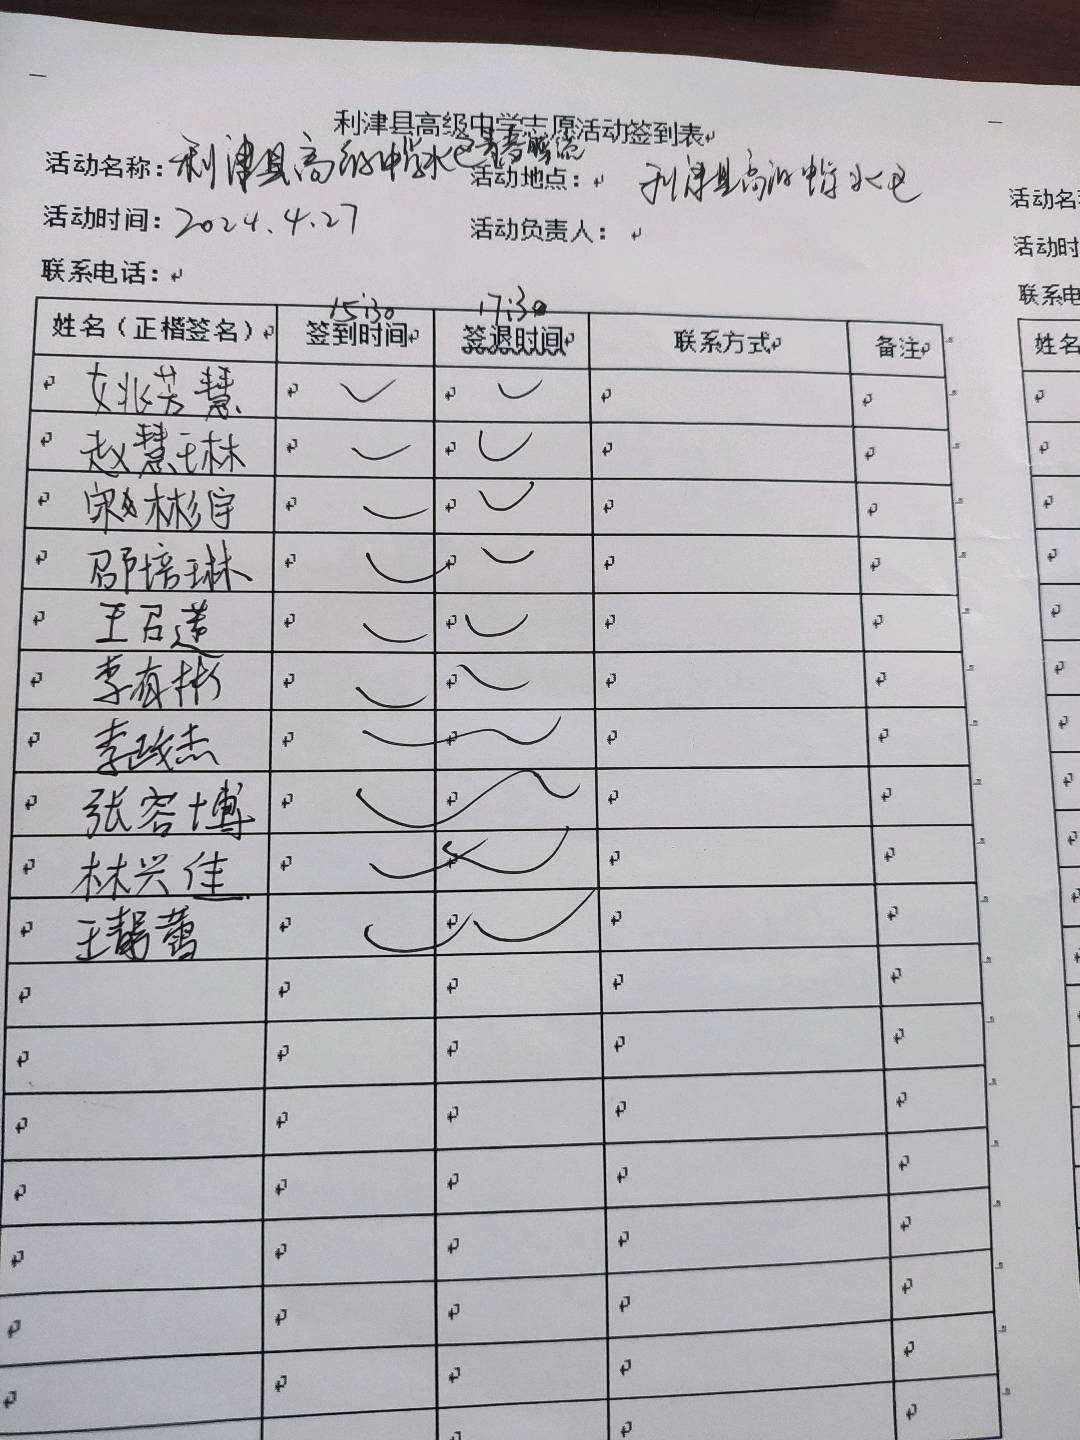 利津县高级中学志愿活动签到表
活动名称：利津县高级中学水电
活动地点： 利津县高级中学水电
活动时间：2024.4.27
活动负责人：
联系电话：
15:30 17:30
姓名（正楷签名） 签到时间 签退时间 联系方式 备注
姚芳慧 ✓ ✓
赵慧琳 ✓ ✓
宋彬宇 ✓ ✓
邵培琳 ✓ ✓
王召莲 ✓ ✓
李有彬 ✓ ✓
李政杰 ✓ ✓
张容博 ✓ ✓
林兴佳 ✓ ✓
王馨蕾 ✓ ✓
活动名
活动时
联系电
姓名